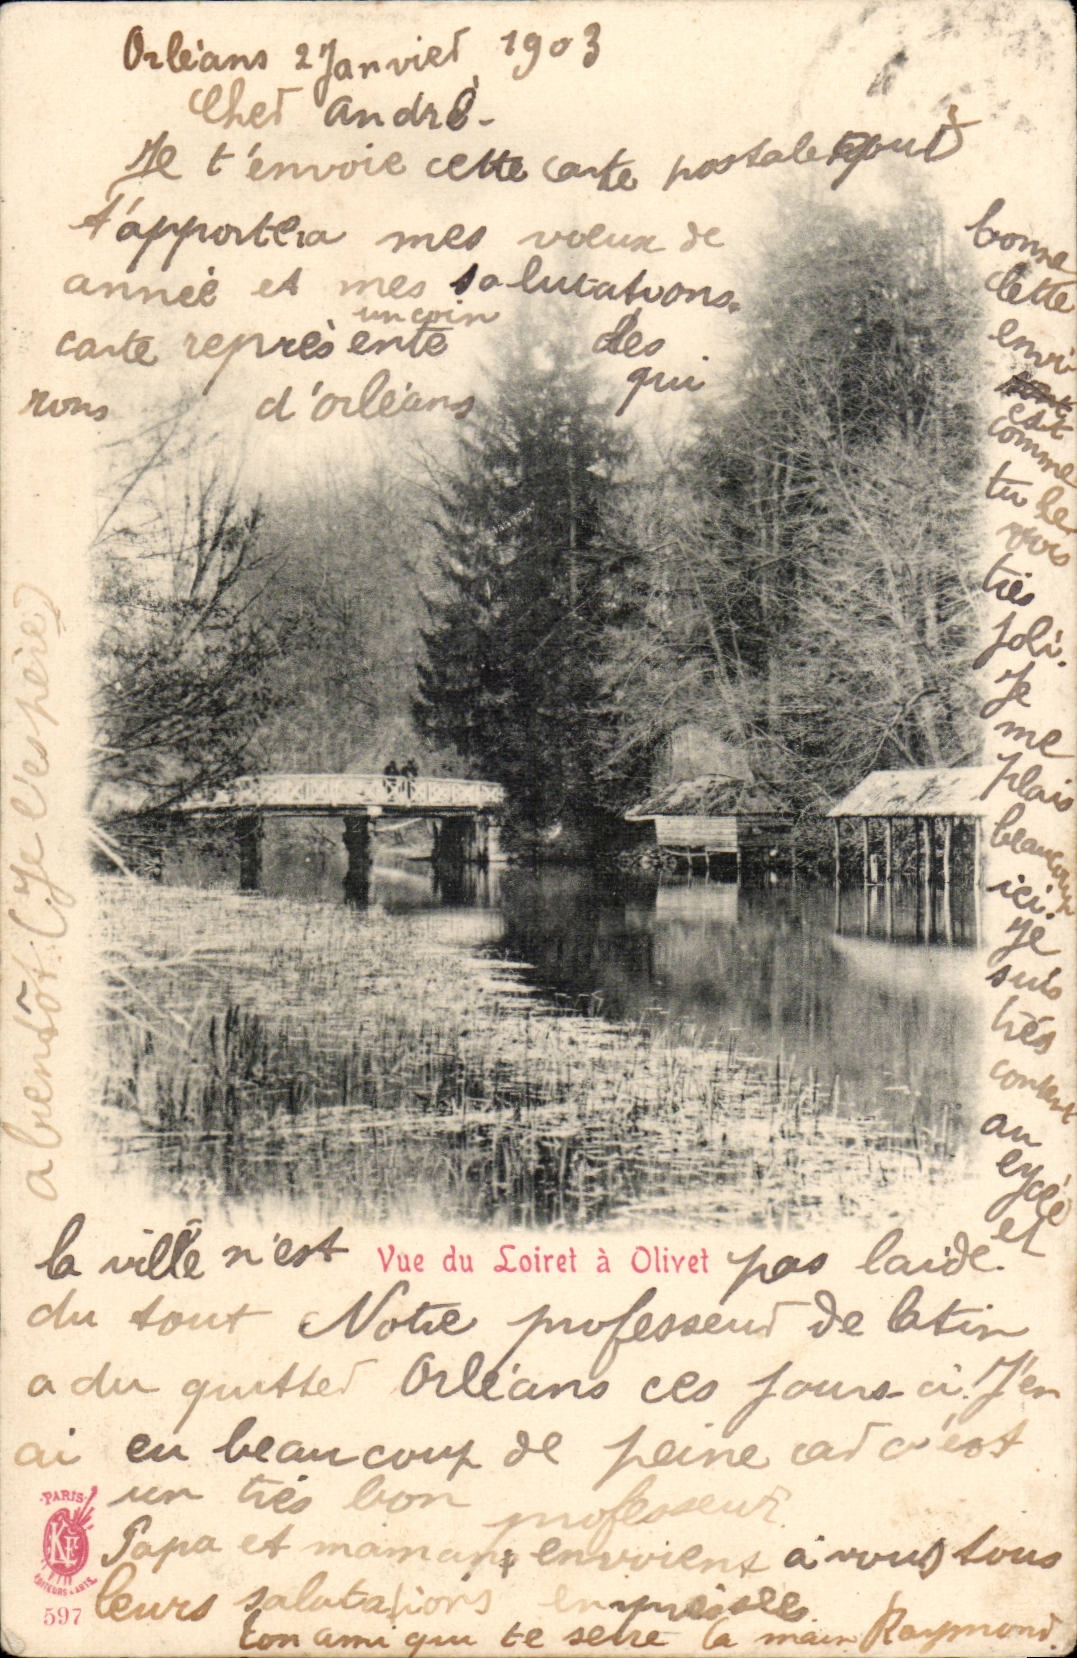 Orléans 2 Janvier 1903
Cher André.
Je t'envoie cette carte postale pour
t'apporter mes voeux de bonne
année et mes salutations. Cette
carte représente un coin des envi
rons d'Orléans qui
est
comme
tu le
vois
très
joli.
Je
me
plais
beaucoup
ici.
Je
suis
très
content
au
lycée
et
la ville n'est pas laide.
Vue du Loiret à Olivet
du tout Notre professeur de latin
a du quitter Orléans ces jours-ci. J'en
ai eu beaucoup de peine car c'est
un très bon professeur
Papa et maman envoient à vous tous
leurs salutations empressées.
ton ami qui te serre la main Raymond.
a bientôt (je l'espère)
PARIS
KF
EDITEURS D'ARTS
597